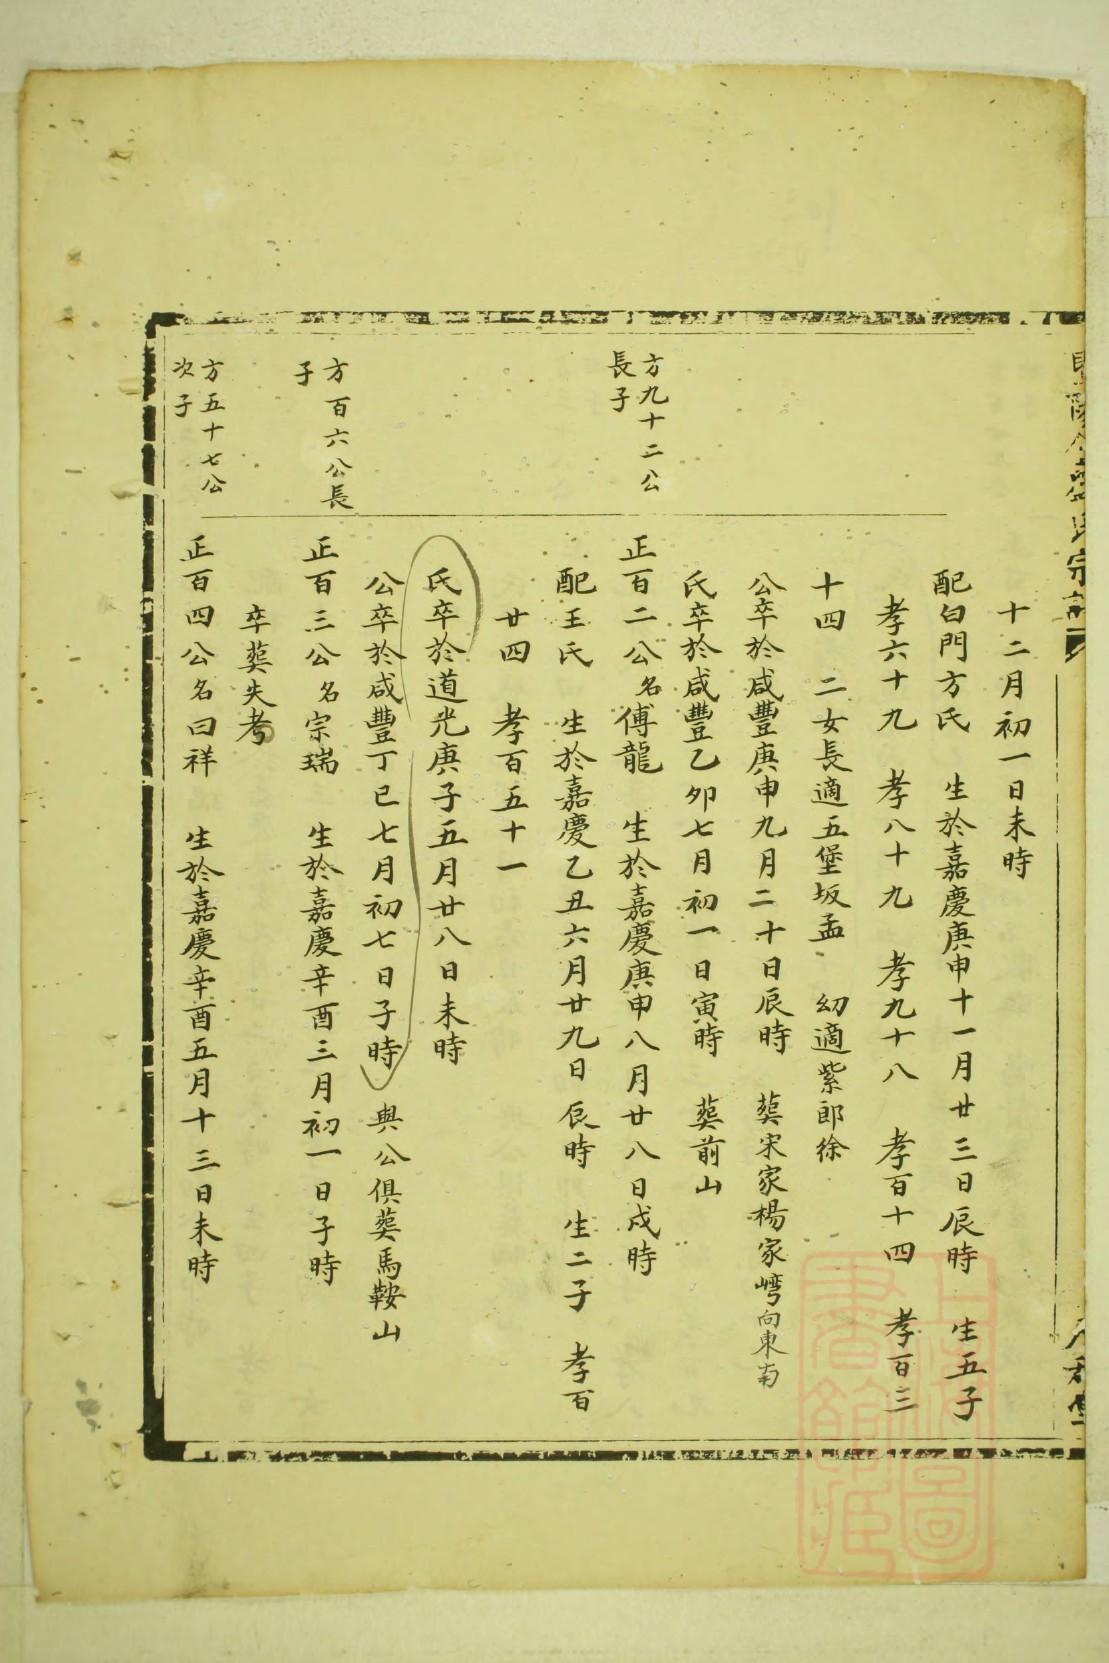 十二月初一日未時
配白門方氏　生於嘉慶庚申十一月廿三日辰時　生五子
孝六十九　孝八十九　孝九十八　孝百十四　孝百三
十四　二女長適五堡坂孟　幼適紫郎徐
公卒於咸豐庚申九月二十日辰時　葬宋家楊家嶀向東南
氏卒於咸豐乙卯七月初一日寅時　葬前山
方九十二公
長子
正百二公名傅龍　生於嘉慶庚申八月廿八日戌時
配王氏　生於嘉慶乙丑六月廿九日辰時　生二子　孝百
廿四　孝百五十一
氏卒於道光庚子五月廿八日未時
公卒於咸豐丁巳七月初七日子時　與公俱葬馬鞍山
方百六公長
子
正百三公名宗瑞　生於嘉慶辛酉三月初一日子時
卒葬失考
方五十七公
次子
正百四公名曰祥　生於嘉慶辛酉五月十三日未時